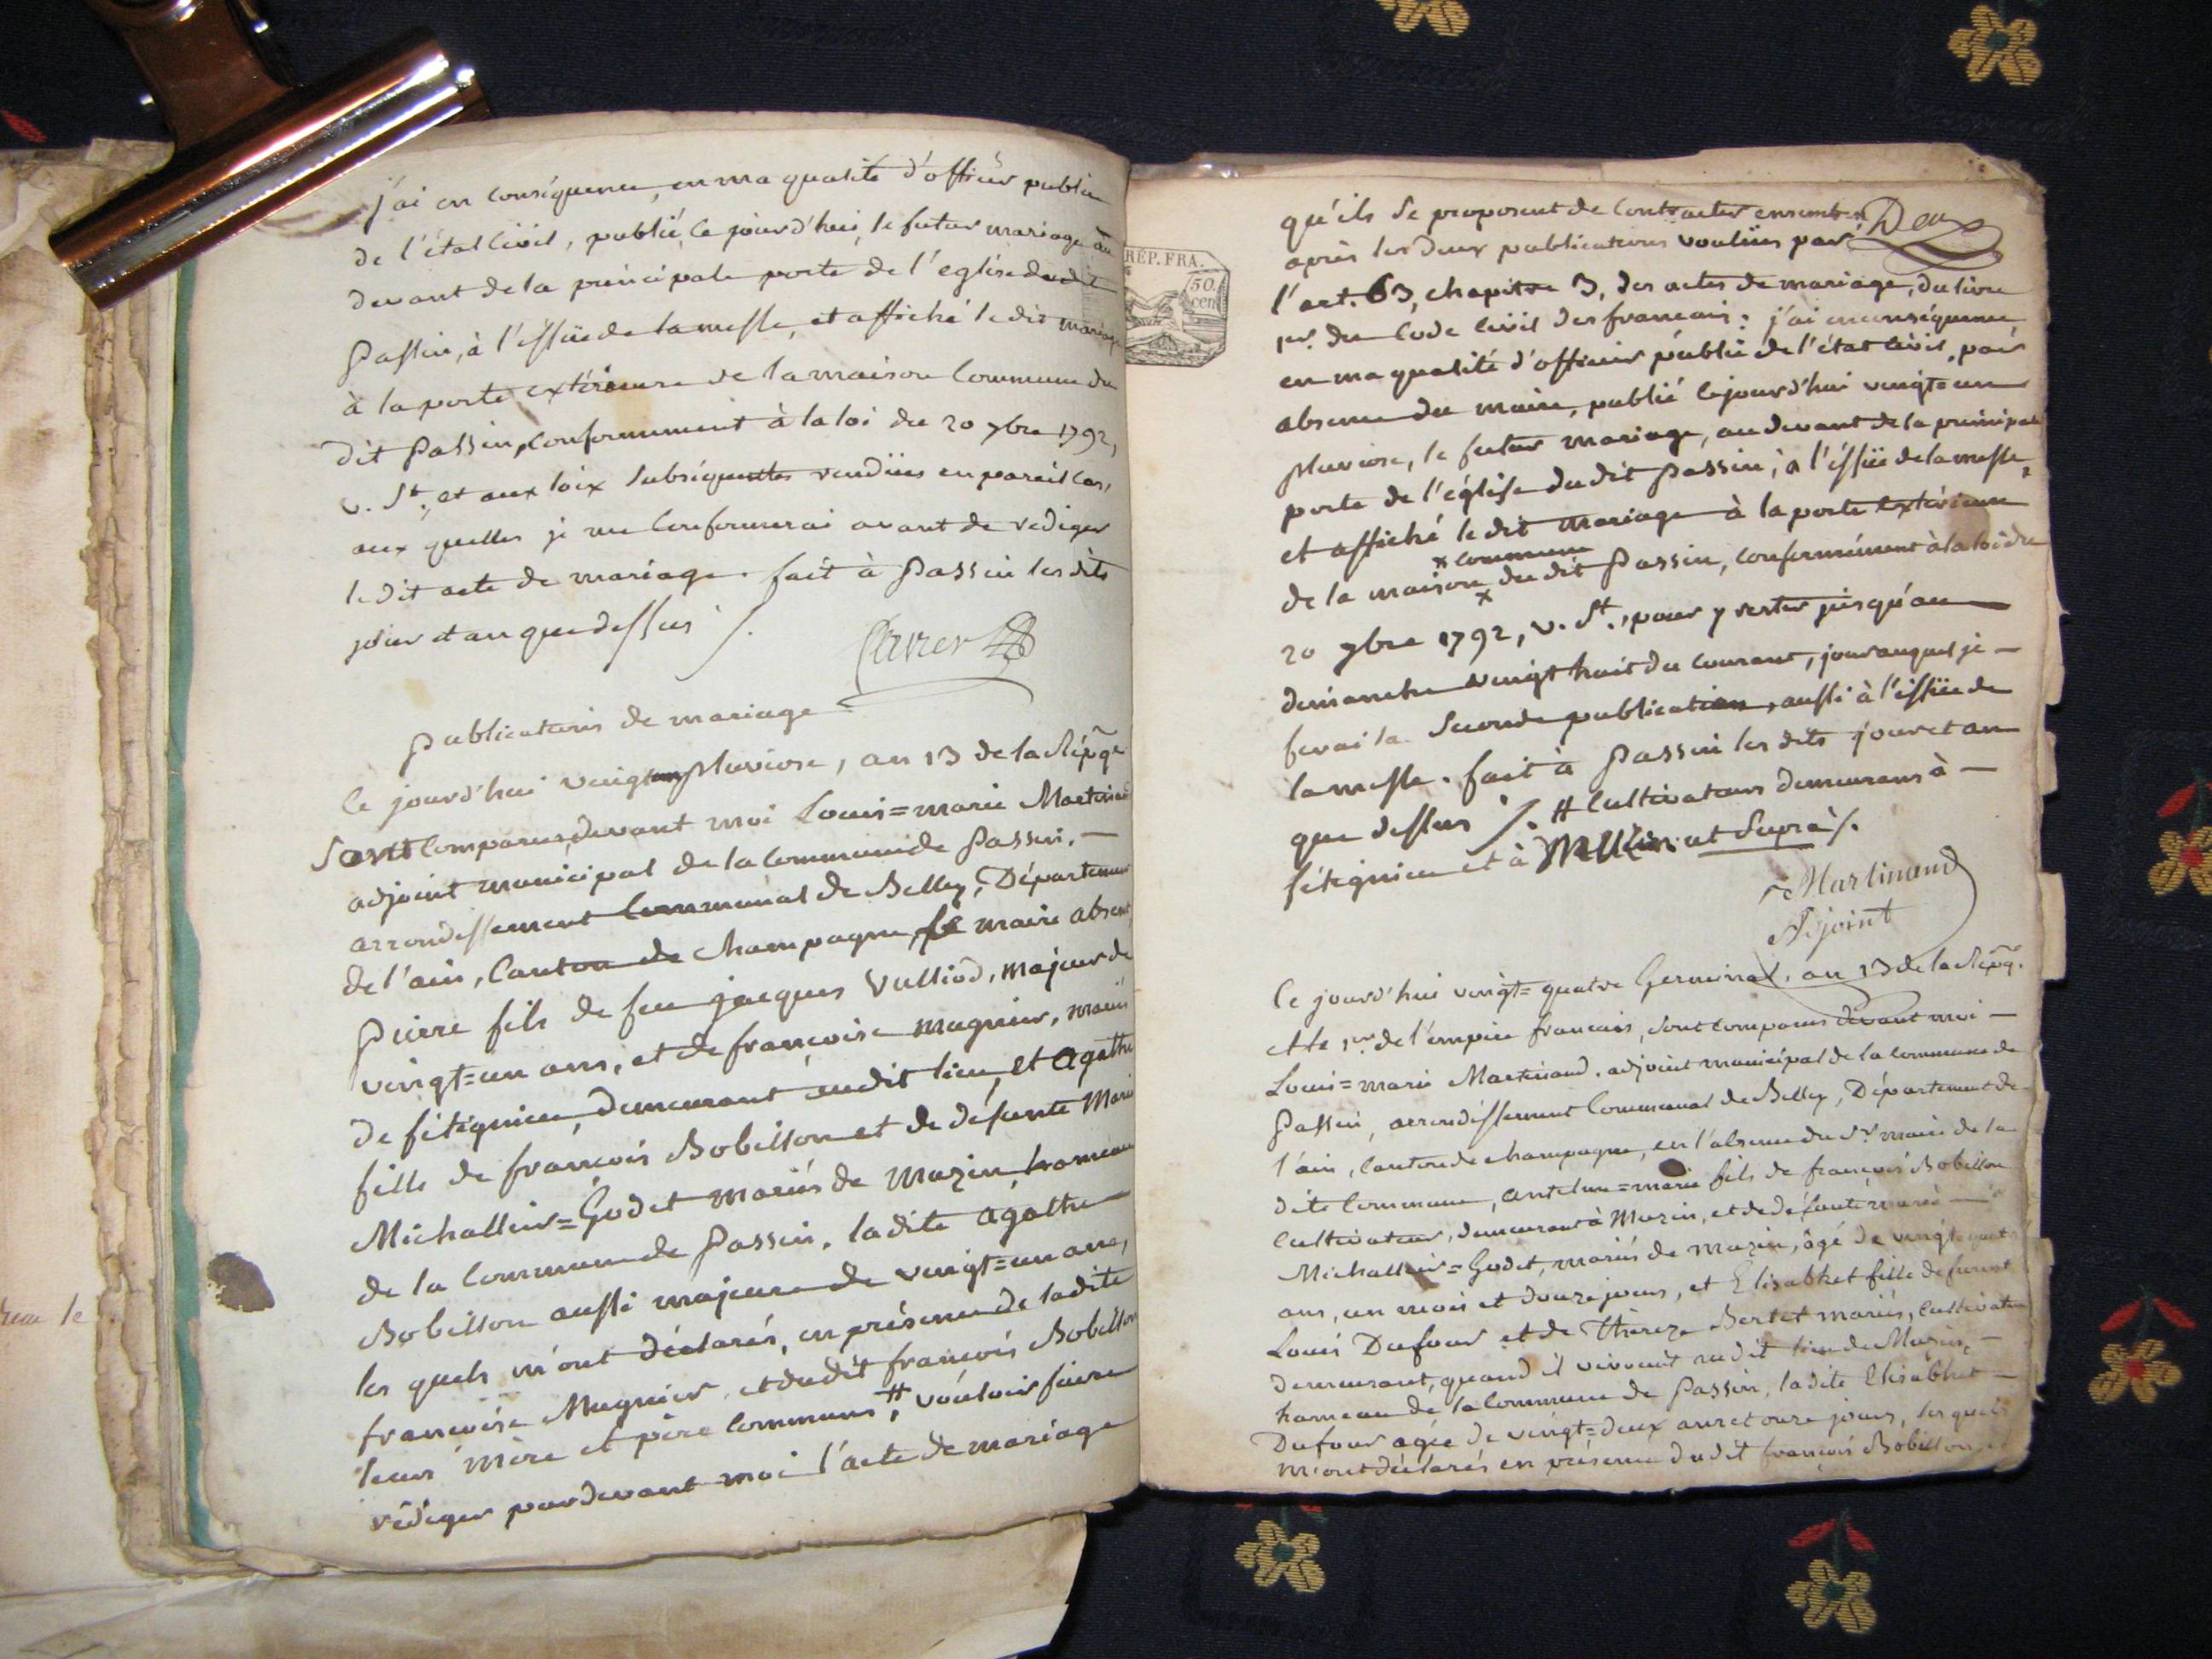 j'ai en conséquence, en ma qualité d'officier public
de l'état civil, publié, ce jourd'hui, le futur mariage au
devant de la principale porte de l'eglise dudit
Passin, à l'issüe de la messe, et affiché le dit mariage
à la porte extérieure de la maison Commune du
dit Passin, conformément à la loi du 20 7bre 1792,
v. St. et aux loix subséquentes rendües en pareil cas,
aux quelles je me conformerai avant de rediger
le dit acte de mariage. fait à Passin les dits
jour et an que dessus /.
publications de mariage
Ce jourd'hui vingt un pluviose, an 13 de la Répq.e
Sont comparus, devant moi Louis=marie Martinand
adjoint municipal de la commune de Passin,
arrondissement Communal de Belley, Département
de l'ain, Canton de Champagne, le maire absent,
Pierre fils de feu jacques Vulliod, majeur de
vingt=un ans, et de françoise magnier, mariés
de fitignieu, demeurant audit lieu, et agathe
fille de françois Bobillon et de défunte Marie
Michallier=Godet mariés de Muzin, hameau
de la commune de Passin, la dite agathe
Bobillon aussi majeure de vingt=un ans,
les quels m'ont déclarés, en présence de la dite
françoise Magnier, et dudit françois Bobillon
leurs mère et père communs #, vouloir faire
rédiger par devant moi l'acte de mariage
RÉP. FRA.
50.
cen
qu'ils se proposent de contracter ensemble
Deux
après les deux publications voulües par
l'art. 63, chapitre 3, des actes de mariage, du livre
1er. du Code Civil des francais; j'ai en conséquence
en ma qualité d'officier public de l'état civil, par
absence du maire, publié cejourd'hui vingt=un
pluviose, le futur mariage, au devant de la principale
porte de l'église du dit Passin, à l'issüe de la messe,
et affiché le dit mariage à la porte extérieure
x commune
de la maison x du dit Passin, conformément à la loi du
20 7bre 1792, v. St., pour y rester jusqu'au
dimanche vingt huit du courant, jour auquel je
ferai la seconde publication, aussi à l'issüe de
la messe. fait à Passin les dits jour et an
que dessus /. # Cultivateurs demeurans à
fitignieu et à Muzin ut Suprà /.
Martinand
Adjoint
Ce jourd'hui vingt=quatre Germinal, an 13 de la Répq.
et le 1er de l'empire francais, sont comparus devant moi
Louis=marie Martinand, adjoint municipal de la commune de
Passin, arrondissement Communal de Belley, Département de
l'ain, canton de champagne, en l'absence du Sr. maire de la
dite commune, antelme=marie fils de françois Bobillon
cultivateur, demeurant à Muzin, et de défunte marie
Michallier=Godet, mariés de muzin, âgé de vingt quatre
ans, un mois et douze jours, et Elisabhet fille de furent
Louis Dufour et de Thèreze Bertet mariés, cultivateurs
demeurant, quand il vivoient audit lieu de Muzin,
hameau de la commune de Passin, ladite Elisabhet
Dufour agée de vingt=deux ans et onze jours, les quels
m'ont déclarés en présence dudit françois Bobillon